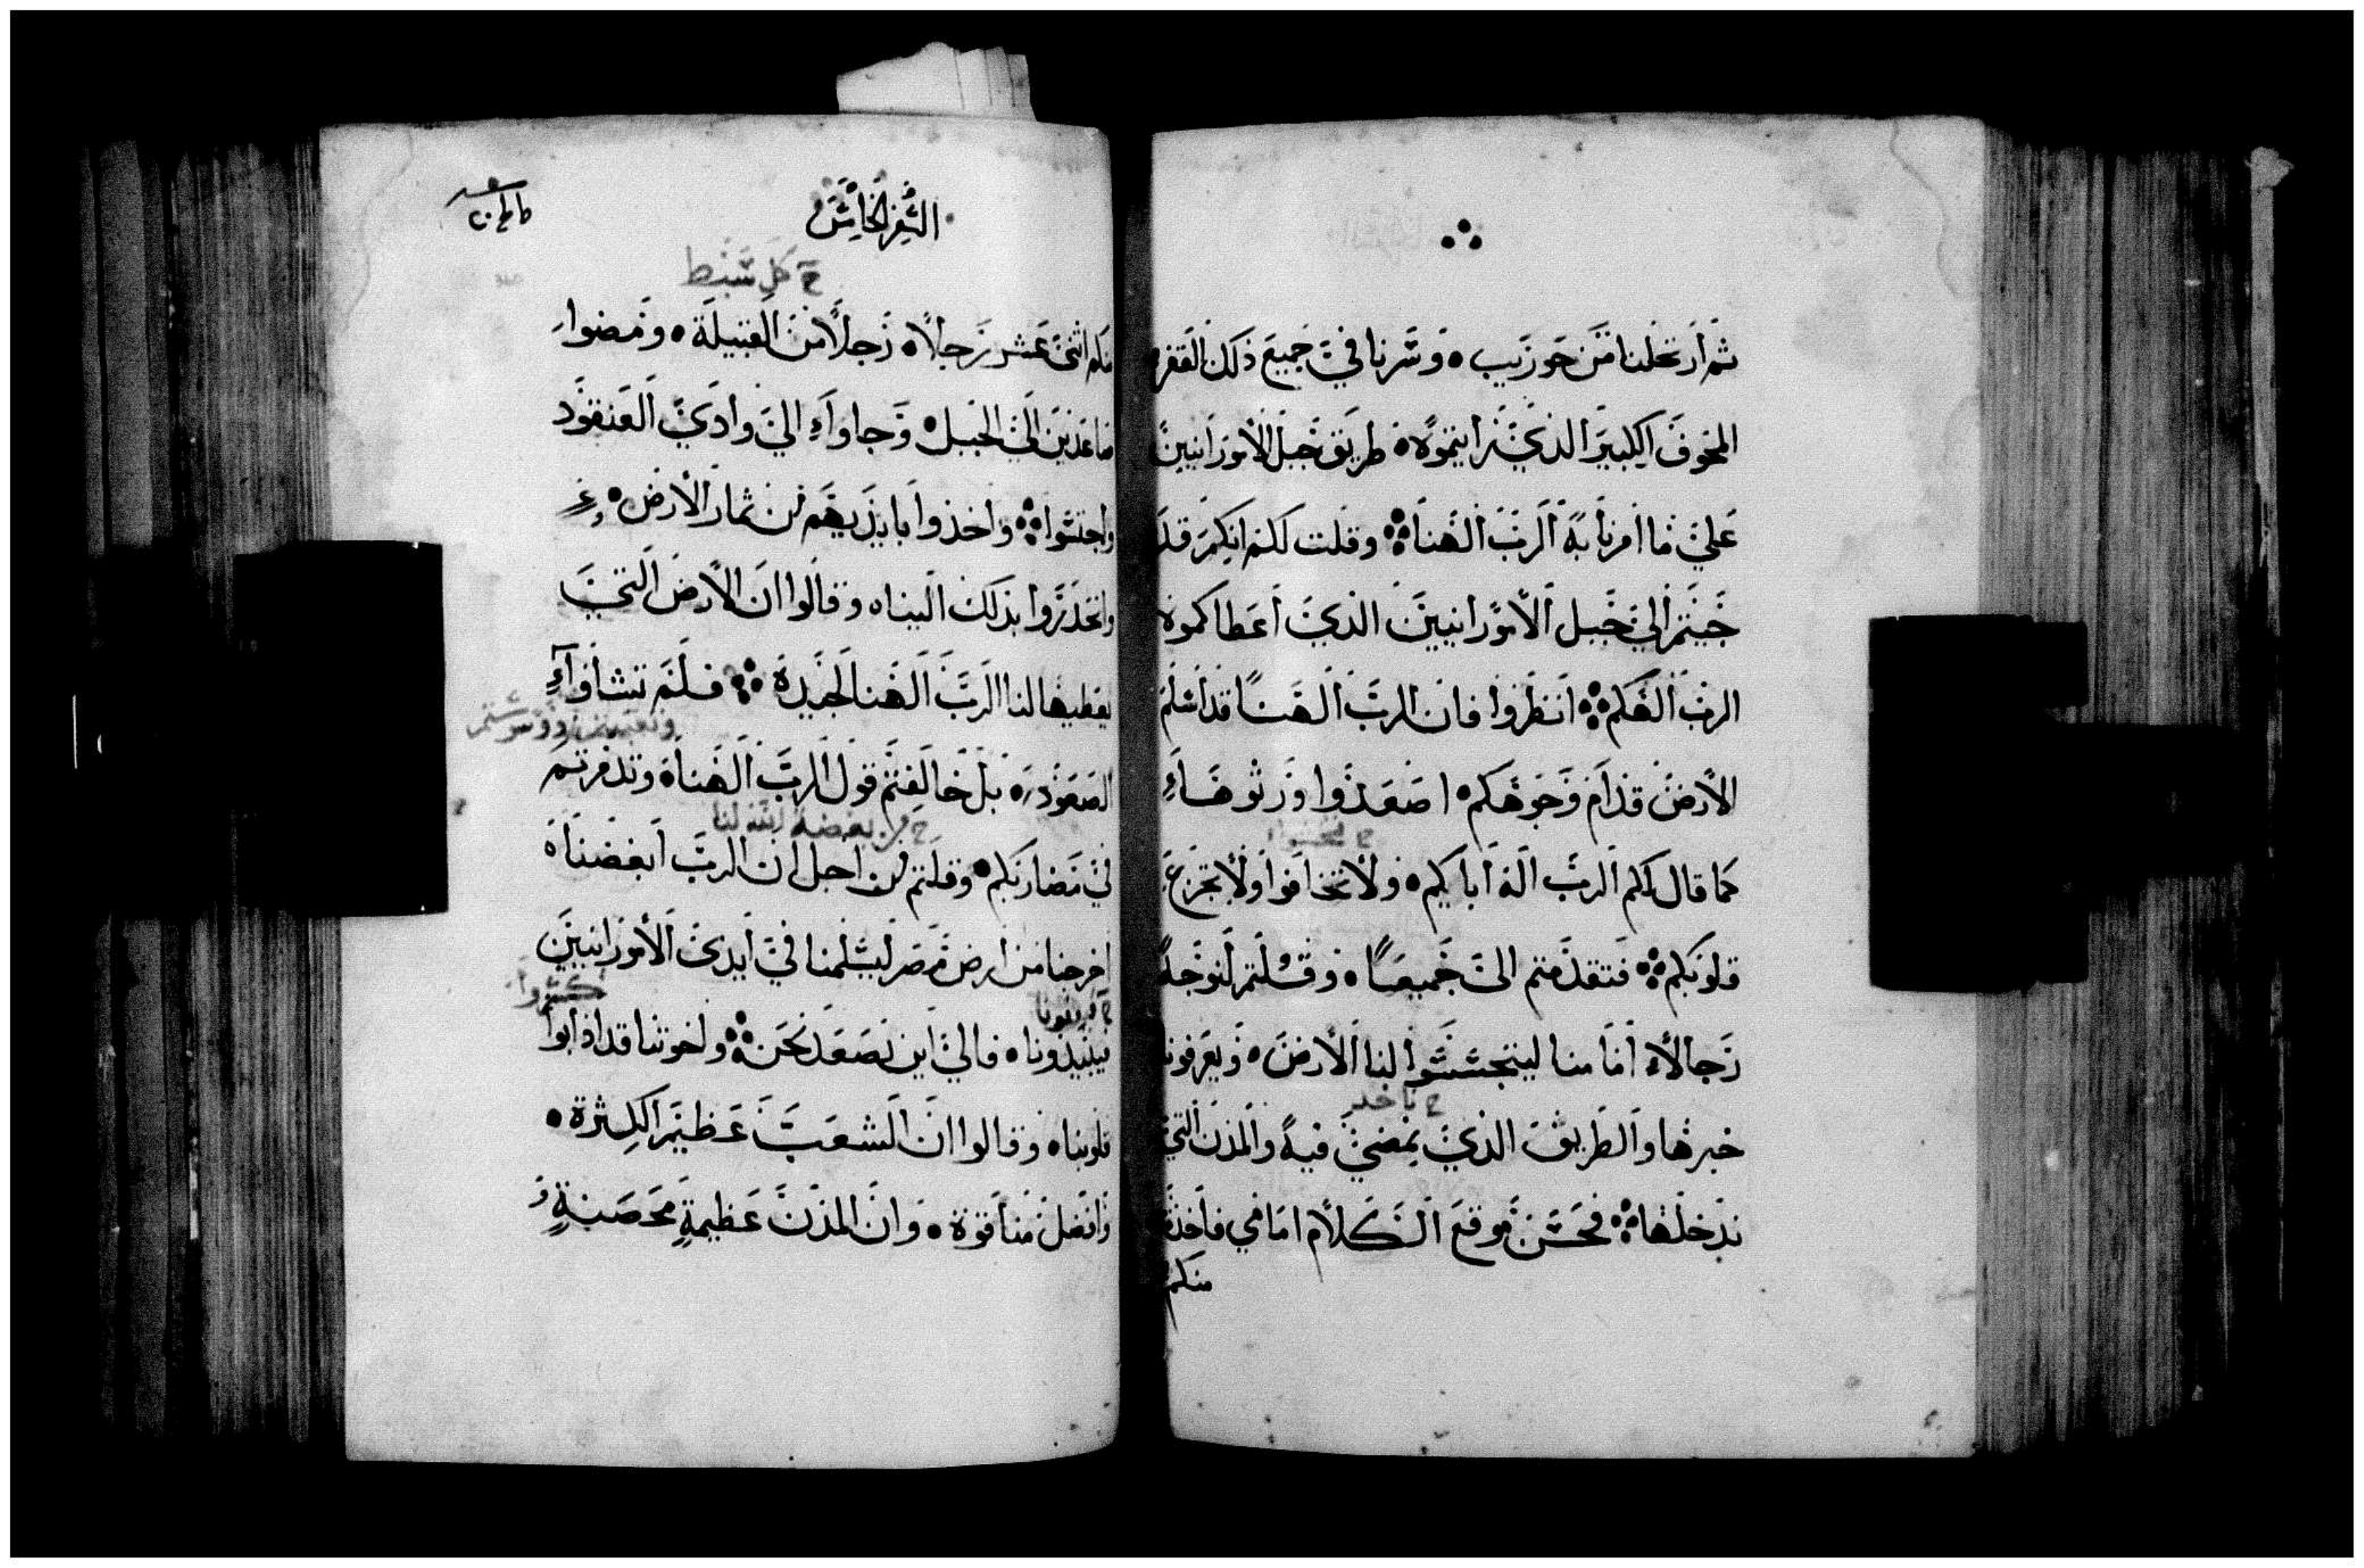 ثم ارتحلنا من حوريب وسرنا في جميع ذلك القفر
المخوف الكبير الذي رايتموه طريق جبل الامورانيين
علي ما امرنا به الرب الهنا وقلت لكم انكم قد
جيتم الي جبل الامورانيين الذي اعطاكموه
الرب الهكم انظروا فان الرب الهنا قد اسلم
الارض قدام وجوهكم اصعدوا ورثوها
كما قال لكم الرب اله ابايكم ولا تخافوا ولا تجزع
قلوبكم فتقدمتم الي جميعا وقلتم لنوجه
رجالا امامنا ليتجسسوا لنا الارض ويعرفونا
ح ناخد
خبرها والطريق الذي نمضي فيه والمدن التي
ندخلها فحسن موقع الكلام امامي فاخذت
منكم
السفر الخامس
ح كل سبط
منكم اثني عشر رجلا رجلا من القبيلة ومضوا
صاعدين الي الجبل وجاوا الي وادي العنقود
واجتسوا واخذوا بايديهم من ثمار الارض
وانحدروا بذلك الينا وقالوا ان الارض التي
يعطيها لنا الرب الهنا لجيدة فلم تشاوا
الصعود بل خالفتم قول الرب الهنا وتذمرتم
ح من بغضة الله لنا
في مضاربكم وقلتم من اجل ان الرب ابغضنا
اخرجنا من ارض مصر ليسلمنا في ايدي الامورانيين
كسروا
فيبيدونا فالي اين نصعد نحن واخوتنا قد اذابوا
قلوبنا وقالوا ان الشعب عظيم الكثرة
وافضل منا قوة وان المدن عظيمة محصنة و